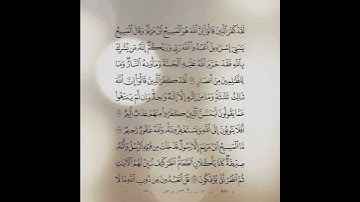 لَقَدْ كَفَرَ ٱلَّذِينَ قَالُوٓا۟ إِنَّ ٱللَّهَ هُوَ ٱلْمَسِيحُ ٱبْنُ مَرْيَمَ وَقَالَ ٱلْمَسِيحُ
يَٰبَنِىٓ إِسْرَٰٓءِيلَ ٱعْبُدُوا۟ ٱللَّهَ رَبِّى وَرَبَّكُمْ إِنَّهُۥ مَن يُشْرِكْ
بِٱللَّهِ فَقَدْ حَرَّمَ ٱللَّهُ عَلَيْهِ ٱلْجَنَّةَ وَمَأْوَىٰهُ ٱلنَّارُ وَمَا
لِلظَّٰلِمِينَ مِنْ أَنصَارٍ لَّقَدْ كَفَرَ ٱلَّذِينَ قَالُوٓا۟ إِنَّ ٱللَّهَ
ثَالِثُ ثَلَٰثَةٍ وَمَا مِنْ إِلَٰهٍ إِلَّآ إِلَٰهٌ وَٰحِدٌ وَإِن لَّمْ يَنتَهُوا۟
عَمَّا يَقُولُونَ لَيَمَسَّنَّ ٱلَّذِينَ كَفَرُوا۟ مِنْهُمْ عَذَابٌ أَلِيمٌ
أَفَلَا يَتُوبُونَ إِلَى ٱللَّهِ وَيَسْتَغْفِرُونَهُۥ وَٱللَّهُ غَفُورٌ رَّحِيمٌ
مَّا ٱلْمَسِيحُ ٱبْنُ مَرْيَمَ إِلَّا رَسُولٌ قَدْ خَلَتْ مِن قَبْلِهِ ٱلرُّسُلُ وَأُمُّهُۥ
صِدِّيقَةٌ كَانَا يَأْكُلَانِ ٱلطَّعَامَ ٱنظُرْ كَيْفَ نُبَيِّنُ لَهُمُ ٱلْءَايَٰتِ
ثُمَّ ٱنظُرْ أَنَّىٰ يُؤْفَكُونَ قُلْ أَتَعْبُدُونَ مِن دُونِ ٱللَّهِ مَا لَا